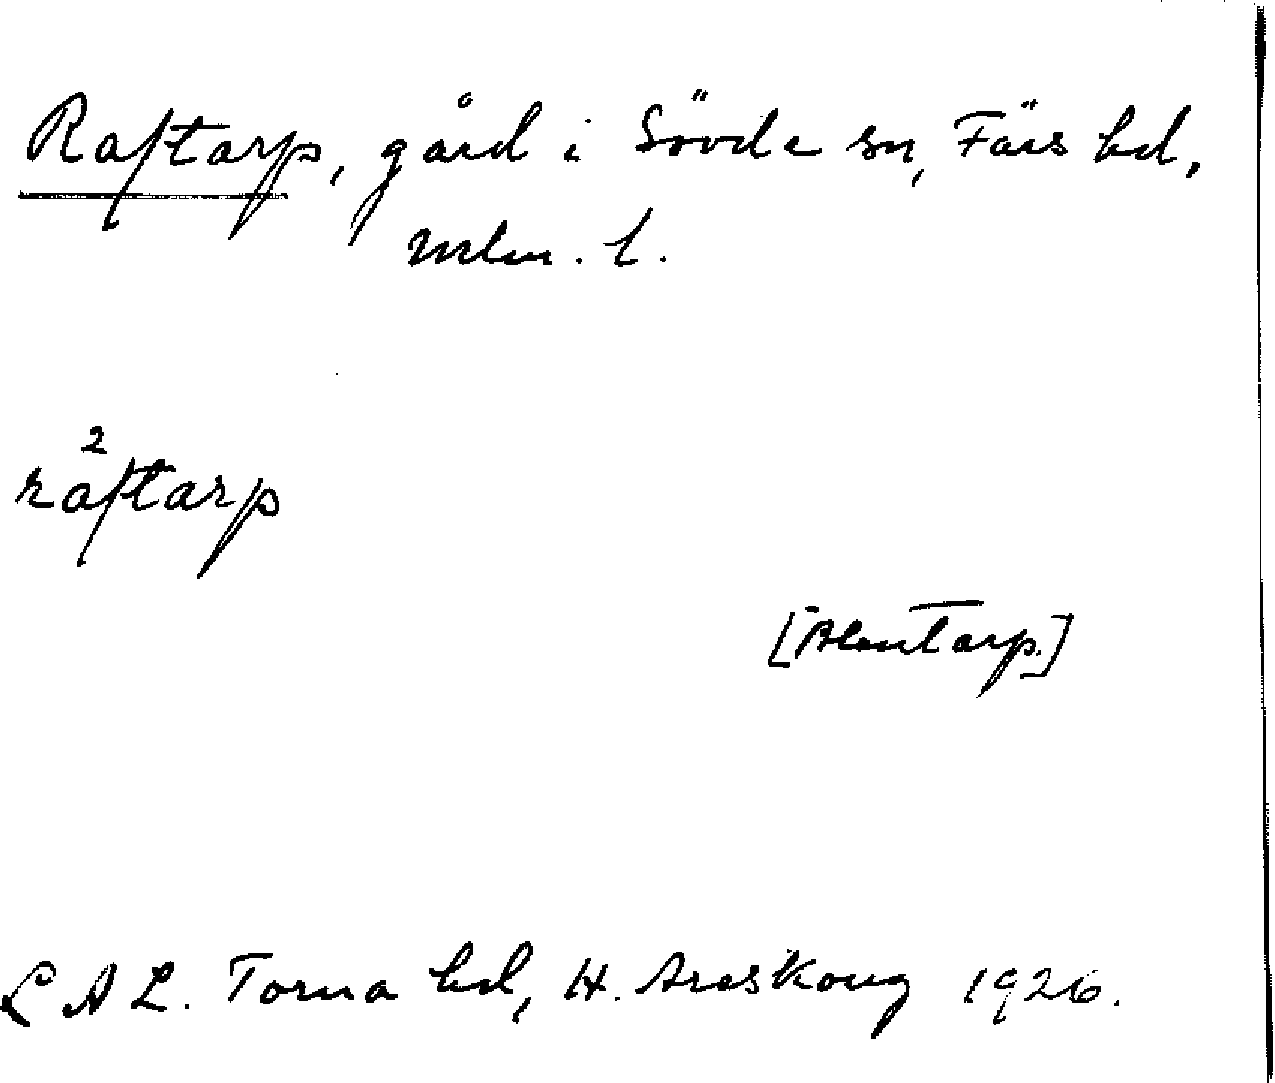 Raftarp, gård i Sövde sn, Färs hd,
Mlm. l.
2
raftarp
[Alentarp.]
LAL. Torna hd, H. Areskoug 1926.